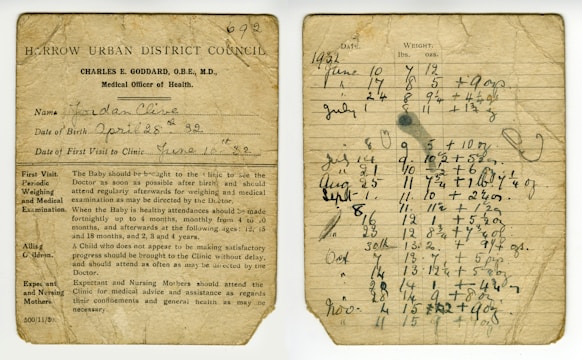 692
HARROW URBAN DISTRICT COUNCIL
CHARLES E. GODDARD, O.B.E., M.D.,
Medical Officer of Health.
Name Jordan Clive
Date of Birth April 28th 32
Date of First Visit to Clinic June 10th 32
First Visit The Baby should be brought to the Clinic to see the
Periodic Doctor as soon as possible after birth and should
Weighing attend regularly afterwards for weighing and medical
and Medical examination as may be directed by the Doctor.
Examination. When the Baby is healthy attendances should be made
fortnightly up to 4 months, monthly from 4 to 10
months, and afterwards at the following ages: 12, 15
and 18 months, and 2, 3 and 4 years.
Ailing A Child who does not appear to be making satisfactory
Children. progress should be brought to the Clinic without delay,
and should attend as often as may be directed by the
Doctor.
Expectant Expectant and Nursing Mothers should attend the
and Nursing Clinic for medical advice and assistance as regards
Mothers their confinements and general health as may be
necessary.
DATE. WEIGHT.
lbs. ozs.
1932
June 10 7 12
" 17 8 5 + 9 ozs
" 24 8 9¼ + 4¼
July 1 8 11
" 8 9 5 + 10 oz
July 14 9 10½
" 21 10
Aug 25 11 7¾
Sept 1 11 10 + 2¼ oz
" 8 11 11½ + 1½ oz
16 12 1 + 5½ oz
" 23 12 8¾ + 7¾ oz
30th 13 2
Oct 7 13 7 + 5
" 14 13 12¼ + 5¼ oz
" 21 14 1
" 28 14 9 + 8 oz
Nov. 4 15 2 + 9 oz
" 11 15 9